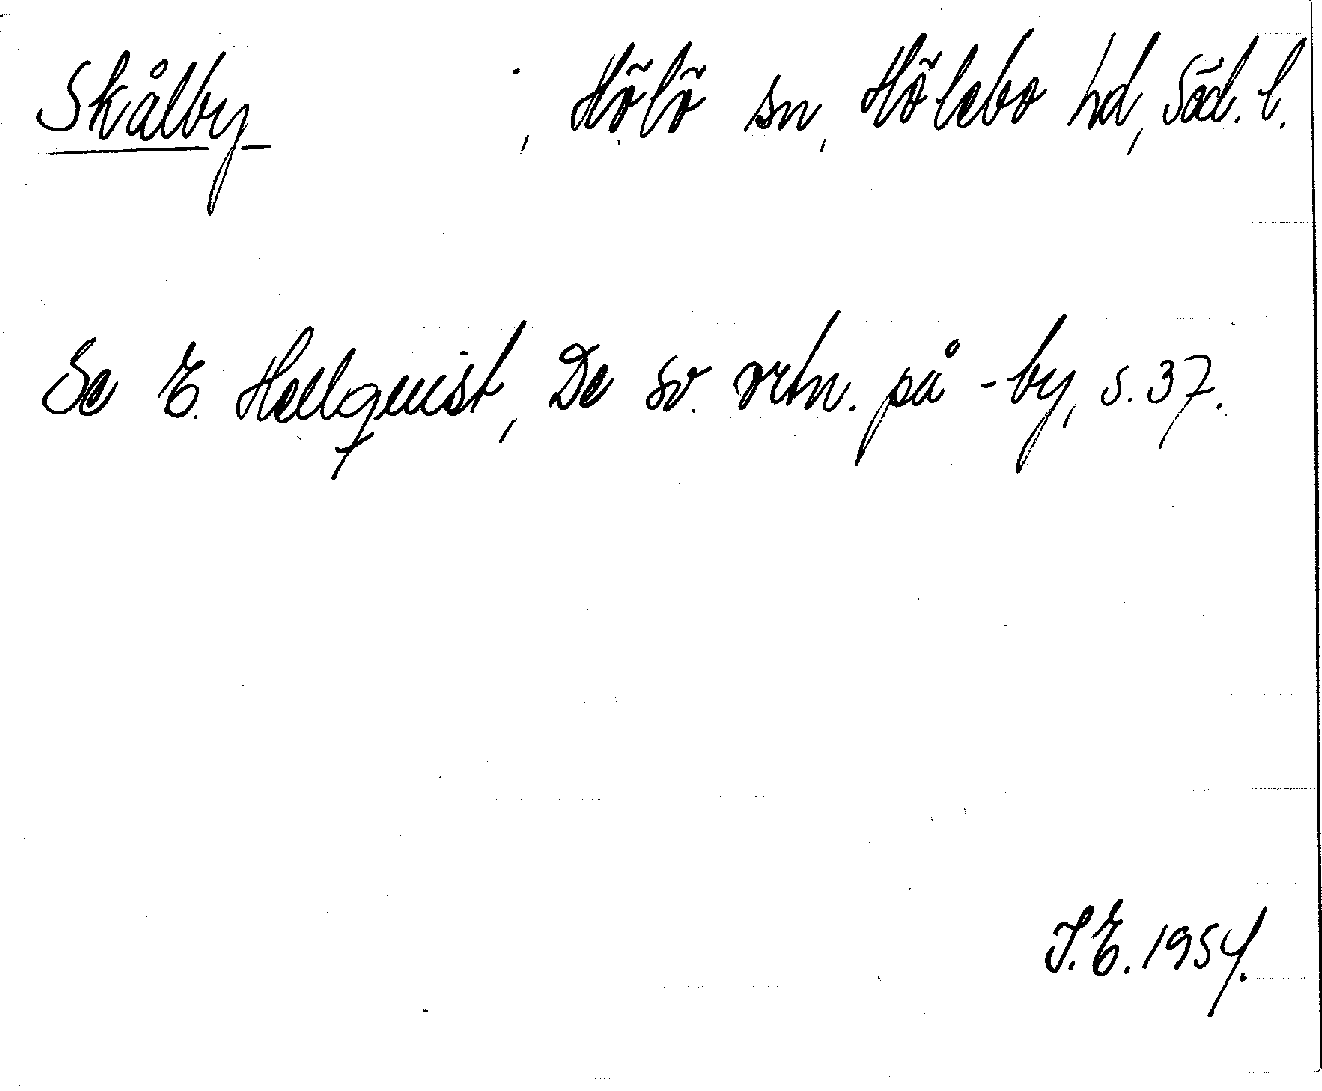 Skålby , Hölö sn, Hölebo hd, Söd. l.
Se E. Hellquist, De sv. ortn. på -by, s. 37.
I.E. 1954.